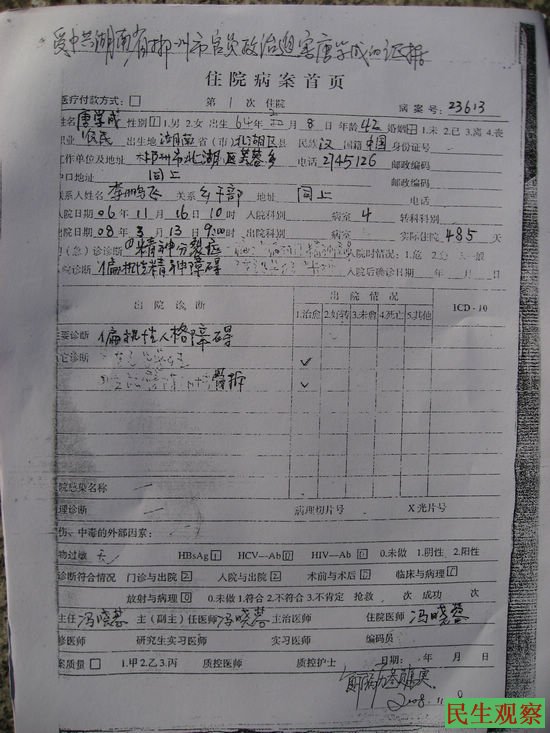 受中共湖南省郴州市官员政治迫害唐学成的证据
住院病案首页
医疗付款方式：□ 第 1 次 住院 病案号：23613
姓名 唐学成 性别 1 1.男 2.女 出生 64年 月 8日 年龄 42 婚姻 1.未 2.已 3.离 4.丧
职业 农民 出生地 湖南 省（市）北湖区县 民族 汉 国籍 中国 身份证号
工作单位及地址 郴州市北湖区芙蓉乡 电话 2145126 邮政编码
户口地址 同上 邮政编码
联系人姓名 李鹏飞 关系 乡干部 地址 同上 电话
入院日期 06年 11月 16日 10时 入院科别 病室 4 转科科别
出院日期 08年 3月 13日 9:00时 出院科别 病室 实际住院 485 天
门（急）诊诊断 精神分裂症 入院时情况：1.危 2.急 3.一般
入院诊断 偏执性精神障碍 入院后确诊日期 年 月 日
出院诊断 出院情况 ICD-10
1.治愈 2.好转 3.未愈 4.死亡 5.其他
主要诊断 偏执性人格障碍
其它诊断 ✓
骨折 ✓
医院感染名称 —
病理诊断 — 病理切片号 X光片号
损伤、中毒的外部因素：—
药物过敏 无 HBsAg 1 HCV—Ab 0 HIV—Ab 0 0.未做 1.阴性 2.阳性
诊断符合情况 门诊与出院 2 入院与出院 2 术前与术后 0 临床与病理 0
放射与病理 0 0.未做 1.符合 2.不符合 3.不肯定 抢救 次 成功 次
科主任 冯晓蓉 主（副主）任医师 冯晓蓉 主治医师 住院医师 冯晓蓉
进修医师 研究生实习医师 实习医师 编码员
病案质量 □ 1.甲 2.乙 3.丙 质控医师 质控护士 日期： 年 月 日
2008.11
民生观察